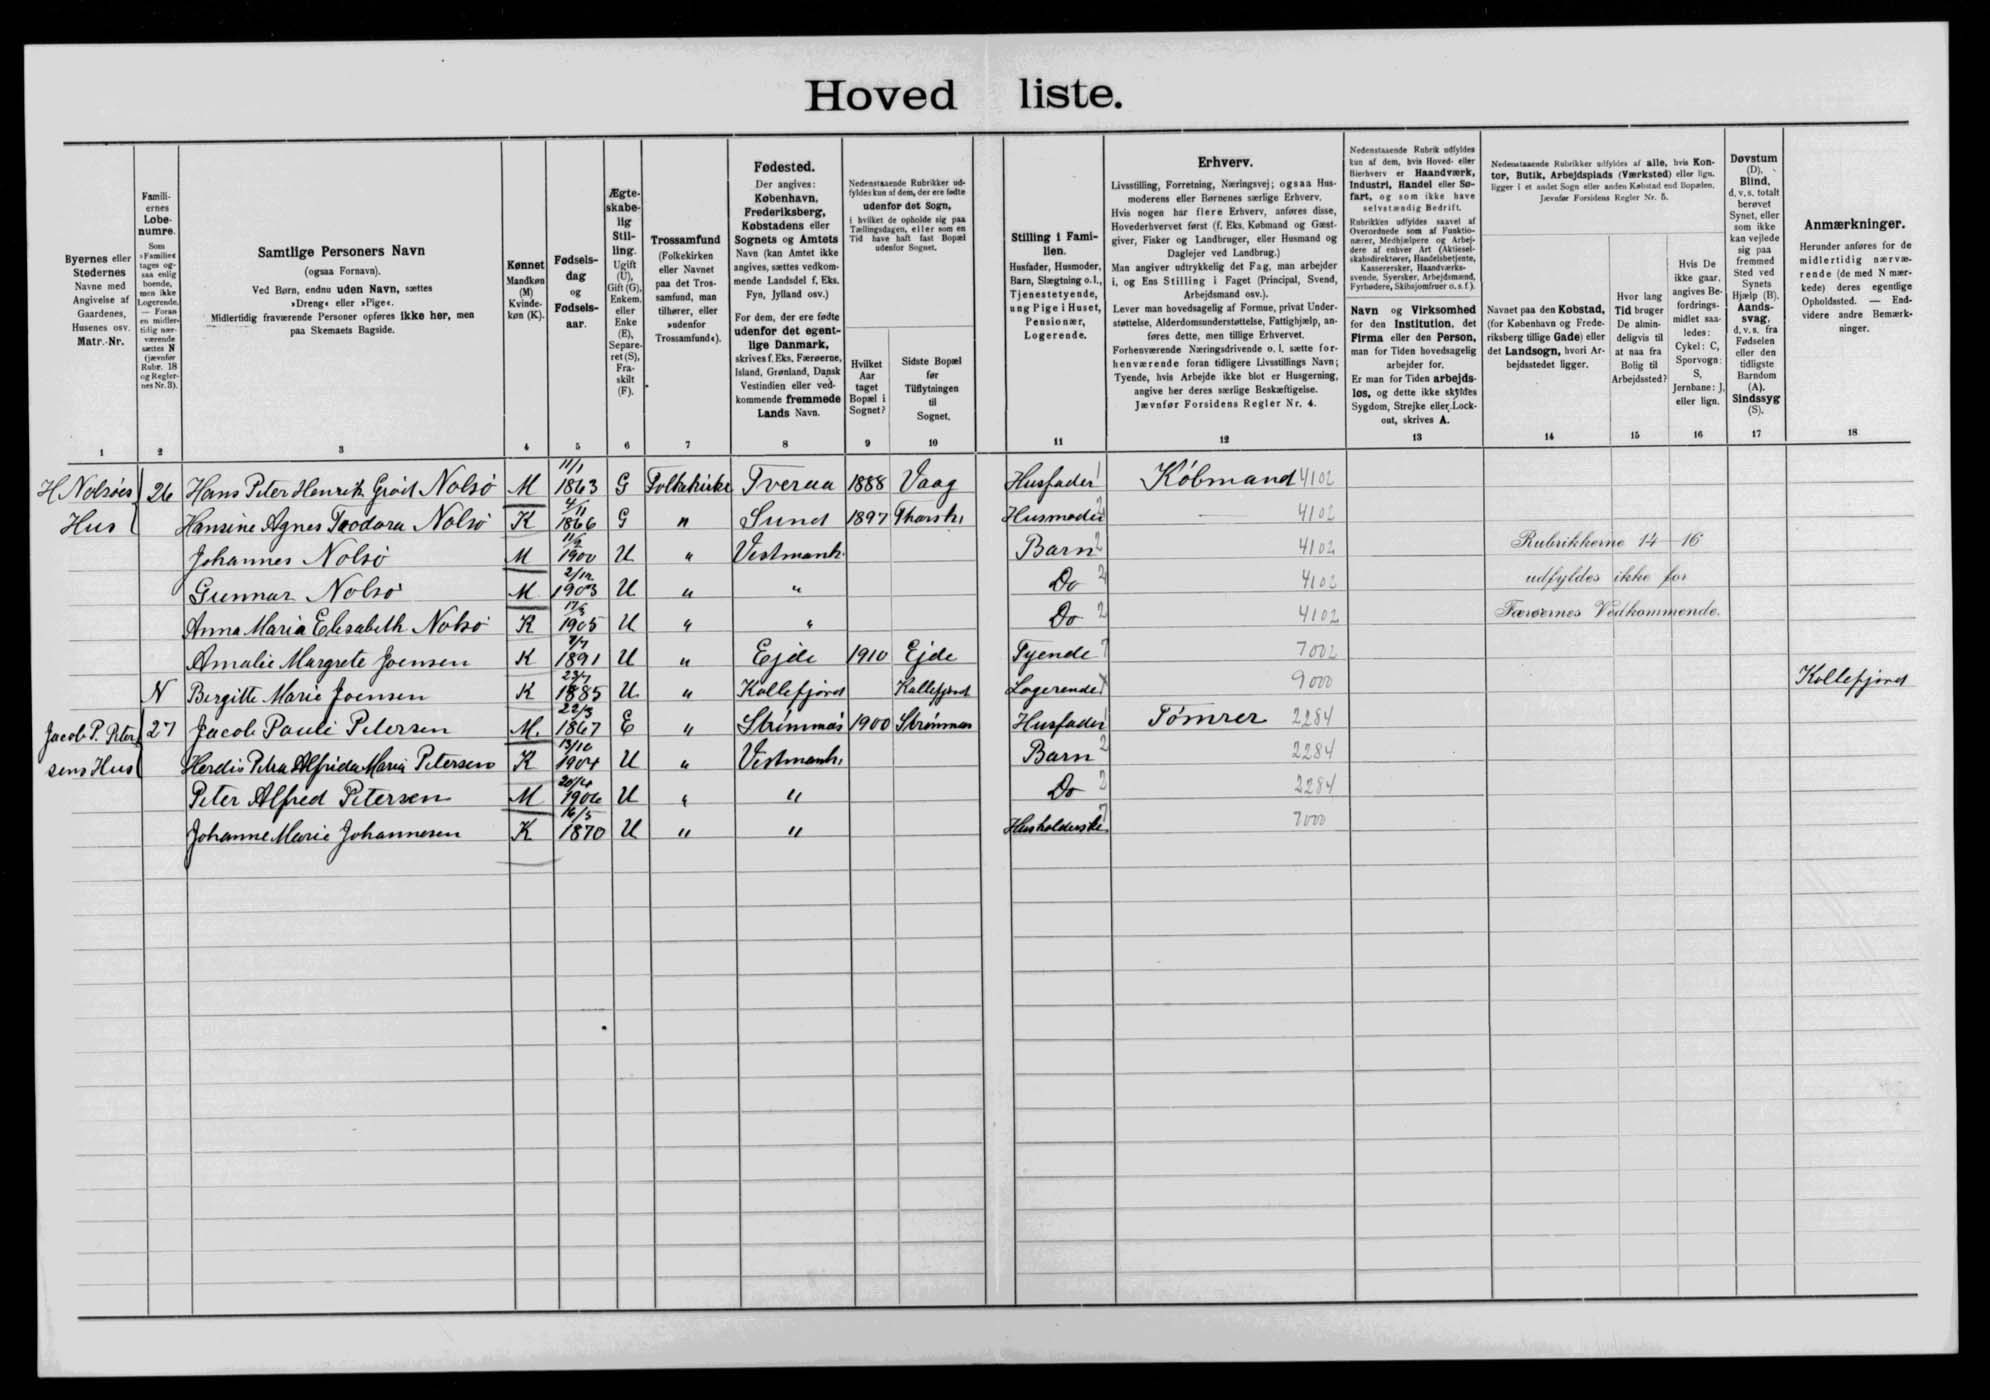 Hovedliste.
Byernes eller
Stedernes
Navne med
Angivelse af
Gaardenes,
Husenes osv.
Matr.-Nr.
1
Famili-
ernes
Løbe-
numre.
Som
»Familie«
tages og-
saa enlig
boende,
men ikke
Logerende.
— Foran
en midler-
tidig nær-
værende
sættes N
(jævnfør
Rubr. 18
og Regler-
nes Nr. 3).
2
Samtlige Personers Navn
(ogsaa Fornavn).
Ved Børn, endnu uden Navn, sættes
»Dreng« eller »Pige«.
Midlertidig fraværende Personer opføres ikke her, men
paa Skemaets Bagside.
3
Kønnet
Mandkøn
(M)
Kvinde-
køn (K).
4
Fødsels-
dag
og
Fødsels-
aar.
5
Ægte-
skabe-
lig
Stil-
ling.
Ugift
(U),
Gift (G),
Enkem.
eller
Enke
(E),
Separe-
ret (S),
Fra-
skilt
(F).
6
Trossamfund
(Folkekirken
eller Navnet
paa det Tros-
samfund, man
tilhører, eller
»udenfor
Trossamfund«).
7
Fødested.
Der angives:
København,
Frederiksberg,
Købstadens eller
Sognets og Amtets
Navn (kan Amtet ikke
angives, sættes vedkom-
mende Landsdel f. Eks.
Fyn, Jylland osv.)
For dem, der ere fødte
udenfor det egent-
lige Danmark,
skrives f. Eks. Færøerne,
Island, Grønland, Dansk
Vestindien eller ved-
kommende fremmede
Lands Navn.
8
Nedenstaaende Rubrikker ud-
fyldes kun af dem, der ere fødte
udenfor det Sogn,
i hvilket de opholde sig paa
Tællingsdagen, eller som en
Tid have haft fast Bopæl
udenfor Sognet.
Hvilket
Aar
taget
Bopæl i
Sognet?
9
Sidste Bopæl
før
Tilflytningen
til
Sognet.
10
Stilling i Fami-
lien.
Husfader, Husmoder,
Barn, Slægtning o.l.,
Tjenestetyende,
ung Pige i Huset,
Pensionær,
Logerende.
11
Erhverv.
Livsstilling, Forretning, Næringsvej; ogsaa Hus-
moderens eller Børnenes særlige Erhverv.
Hvis nogen har flere Erhverv, anføres disse,
Hovederhvervet først (f. Eks. Købmand og Gæst-
giver, Fisker og Landbruger, eller Husmand og
Daglejer ved Landbrug.)
Man angiver udtrykkelig det Fag, man arbejder
i, og Ens Stilling i Faget (Principal, Svend,
Arbejdsmand osv.).
Lever man hovedsagelig af Formue, privat Under-
støttelse, Alderdomsunderstøttelse, Fattighjælp, an-
føres dette, men tillige Erhvervet.
Forhenværende Næringsdrivende o. l. sætte for-
henværende foran tidligere Livsstillings Navn;
Tyende, hvis Arbejde ikke blot er Husgerning,
angive her deres særlige Beskæftigelse.
Jævnfør Forsidens Regler Nr. 4.
12
Nedenstaaende Rubrik udfyldes
kun af dem, hvis Hoved- eller
Bierhverv er Haandværk,
Industri, Handel eller Sø-
fart, og som ikke have
selvstændig Bedrift.
Rubrikken udfyldes saavel af
Overordnede som af Funktio-
nærer, Medhjælpere og Arbej-
dere af enhver Art (Aktiesel-
skabsdirektører, Handelsbetjente,
Kassererske, Haandværks-
svende, Syersker, Arbejdsmænd,
Fyrbødere, Skibsjomfruer o. s. f.).
Navn og Virksomhed
for den Institution, det
Firma eller den Person,
man for Tiden hovedsagelig
arbejder for.
Er man for Tiden arbejds-
løs, og dette ikke skyldes
Sygdom, Strejke eller Lock-
out, skrives A.
13
Nedenstaaende Rubrikker udfyldes af alle, hvis Kon-
tor, Butik, Arbejdsplads (Værksted) eller lign.
ligger i et andet Sogn eller anden Købstad end Bopælen.
Jævnfør Forsidens Regler Nr. 5.
Navnet paa den Købstad,
(for København og Frede-
riksberg tillige Gade) eller
det Landsogn, hvori Ar-
bejdsstedet ligger.
14
Hvor lang
Tid bruger
De almin-
deligvis til
at naa fra
Bolig til
Arbejdssted?
15
Hvis De
ikke gaar,
angives Be-
fordrings-
midlet saa-
ledes:
Cykel: C,
Sporvogn:
S,
Jernbane: J,
eller lign.
16
Døvstum
(D),
Blind,
d. v. s. totalt
berøvet
Synet, eller
som ikke
kan vejlede
sig paa
fremmed
Sted ved
Synets
Hjælp (B).
Aands-
svag,
d. v. s. fra
Fødselen
eller den
tidligste
Barndom
(A).
Sindssyg
(S).
17
Anmærkninger.
Herunder anføres for de
midlertidig nærvæ-
rende (de med N mær-
kede) deres egentlige
Opholdssted. — End-
videre andre Bemærk-
ninger.
18
H Nolsöes 26 Hans Peter Henrik Nolsö M 11/1 1863 G Folkekirke Tveraa 1888 Vaag Husfader 1 Köbmand 4102
Hus Hansine Agnes Teodora Nolsö K 4/11 1866 G " Sund 1897 Thorsh. Husmoder 2 — 4102
Johannes Nolsö M 1900 U " Vestmanh. Barn 2 4102 Rubrikkerne 14-16
Gunnar Nolsö M 2/12 1903 U " " Do 2 4102 udfyldes ikke for
Anna Maria Elisabeth Nolsö K 1905 U " " Do 2 4102 Færøernes Vedkommende.
Amalie Margrete Joensen K 1891 U " Ejde 1910 Ejde Tyende 7 7002
N Bergitte Marie Joensen K 23/7 1885 U " Kollefjord Kollefjord Logerende 9000 Kollefjord
Jacob P. Peter 27 Jacob Pauli Petersen M. 22/3 1867 E " Strömnæs 1900 Strömnæs Husfader 1 Tömrer 2284
sens Hus Herdis Petra Alfrida Maria Petersen K 13/10 1904 U " Vestmanh. Barn 2 2284
Peter Alfred Petersen M 1906 U " " Do 2 2284
Johanne Marie Johannesen K 16/5 1870 U " " Husholderske 7 7000